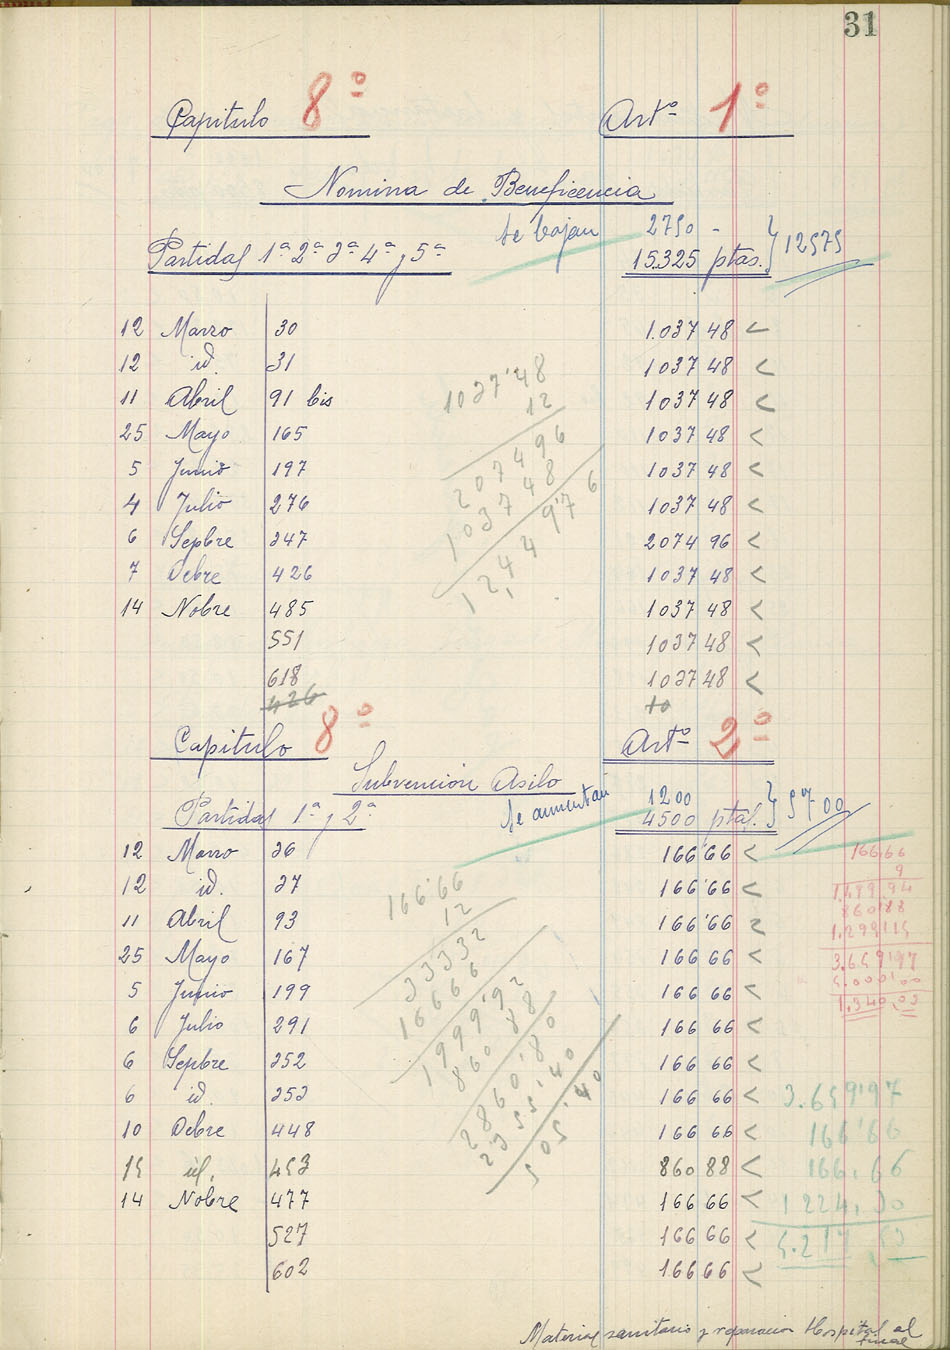 31
Capitulo 8º Artº 1º
Nomina de Beneficencia
se bajan 2750 -
Partidas 1ª 2ª 3ª 4ª y 5ª 15.325 ptas. } 12575
12 Marzo 30 1.037 48 <
12 id. 31 1037 48 <
11 Abril 91 bis 1037 48 <
25 Mayo 165 1037 48 <
5 Junio 197 1037 48 <
4 Julio 276 1037 48 <
6 Sepbre 347 2074 96 <
7 Ocbre 426 1037 48 <
14 Nobre 485 1037 48 <
551 1037 48 <
618 1037 48 <
426 10
1037'48
12
207496
103748
12,449'76
Capitulo 8º Artº 2º
Subvención Asilo
se aumentan 1200
Partidas 1ª y 2ª 4500 ptas. } 5700
12 Marzo 36 166'66 <
12 id. 37 166'66 <
11 Abril 93 166'66 <
25 Mayo 167 166 66 <
5 Junio 199 166 66 <
6 Julio 291 166 66 <
6 Sepbre 352 166 66 <
6 id. 353 166 66 <
10 Ocbre 448 166 66 <
15 id. 453 860 88 <
14 Nobre 477 166 66 <
527 166 66 <
602 166 66 <
166'66
12
33332
16666
1999'92
860 88
2860'80
2355'40
505'40
166,66
9
1.499,94
860,88
1.299,15
3.659'97
5.000,00
1.340,03
3.659'97
166'66
166,66
1224,30
Material sanitario y reparacion Hospital al
final